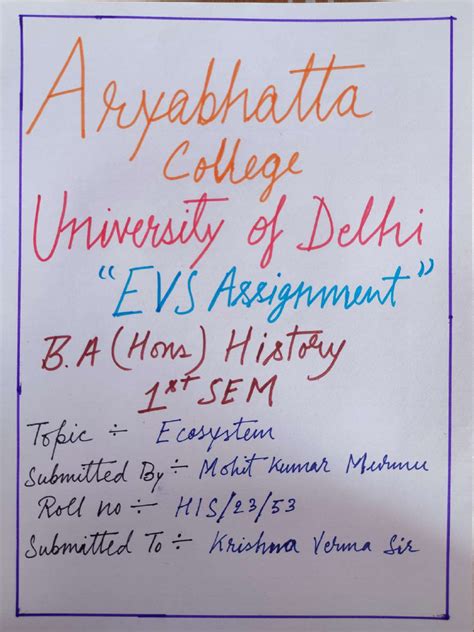 Aryabhatta
College
University of Delhi
"EVS Assignment"
B.A (Hons) History
1st SEM
Topic ÷ Ecosystem
Submitted By ÷ Mohit Kumar Murmu
Roll no ÷ HIS/23/53
Submitted To ÷ Krishna Verma Sir